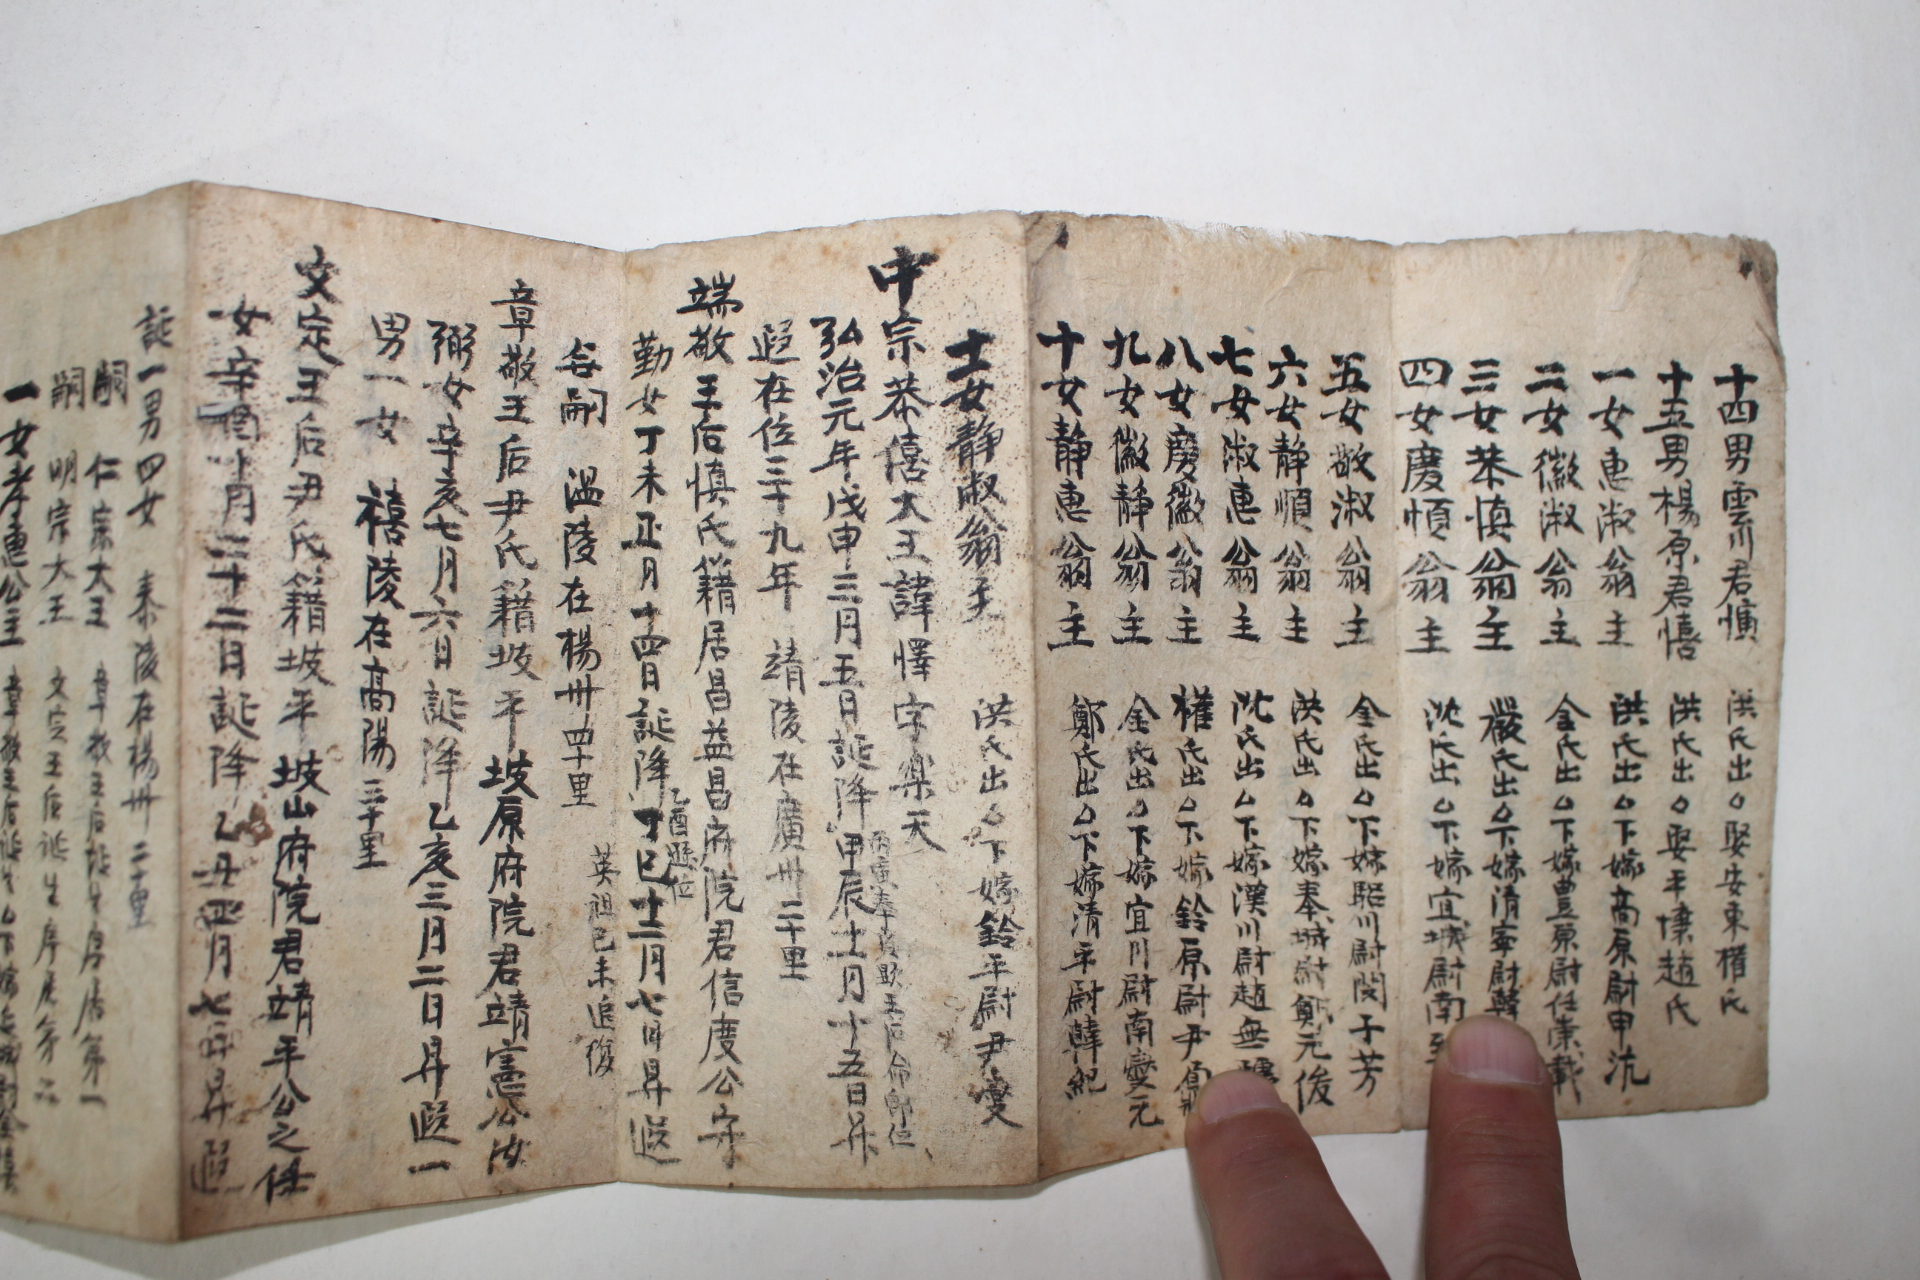 十四男雲川君㥥 洪氏出○娶安東權氏
十五男楊原君憘 洪氏出○娶平壤趙氏
一女惠淑翁主 洪氏出○下嫁高原尉申沆
二女徽淑翁主 金氏出○下嫁豊原尉任崇載
三女恭愼翁主 嚴氏出○下嫁清寧尉韓
四女慶順翁主 沈氏出○下嫁宜城尉南
五女敬淑翁主 金氏出○下嫁驪川尉閔子芳
六女静順翁主 洪氏出○下嫁奉城尉鄭元俊
七女淑惠翁主 沈氏出○下嫁漢川尉趙無彊
八女慶徽翁主 權氏出○下嫁鈴原尉尹
九女徽静翁主 金氏出○下嫁宜川尉南燮元
十女静惠翁主 鄭氏出○下嫁清平尉韓紀
十一女静淑翁主 洪氏出○下嫁鈴平尉尹燮
中宗恭僖大王諱懌字樂天
弘治元年戊申三月五日誕降甲辰十一月十五日昇
遐在位三十九年 靖陵在廣州二十里
端敬王后愼氏籍居昌益昌府院君信度公守
勤女丁未正月十四日誕降丁巳十二月七日昇遐
无嗣 温陵在楊州四十里 英祖己未追復
章敬王后尹氏籍坡平坡原府院君靖憲公汝
弼女辛亥七月六日誕降乙亥三月二日昇遐一
男一女 禧陵在高陽三十里
文定王后尹氏籍坡平坡山府院君靖平公之任
女辛酉十月二十二日誕降乙丑四月七日昇遐
誕一男四女 泰陵在楊州二十里
嗣 仁宗大王 章敬王后誕生序居第一
嗣 明宗大王 文定王后誕生序居第二
一女孝惠公主 章敬王后誕生○下嫁延城尉金禧